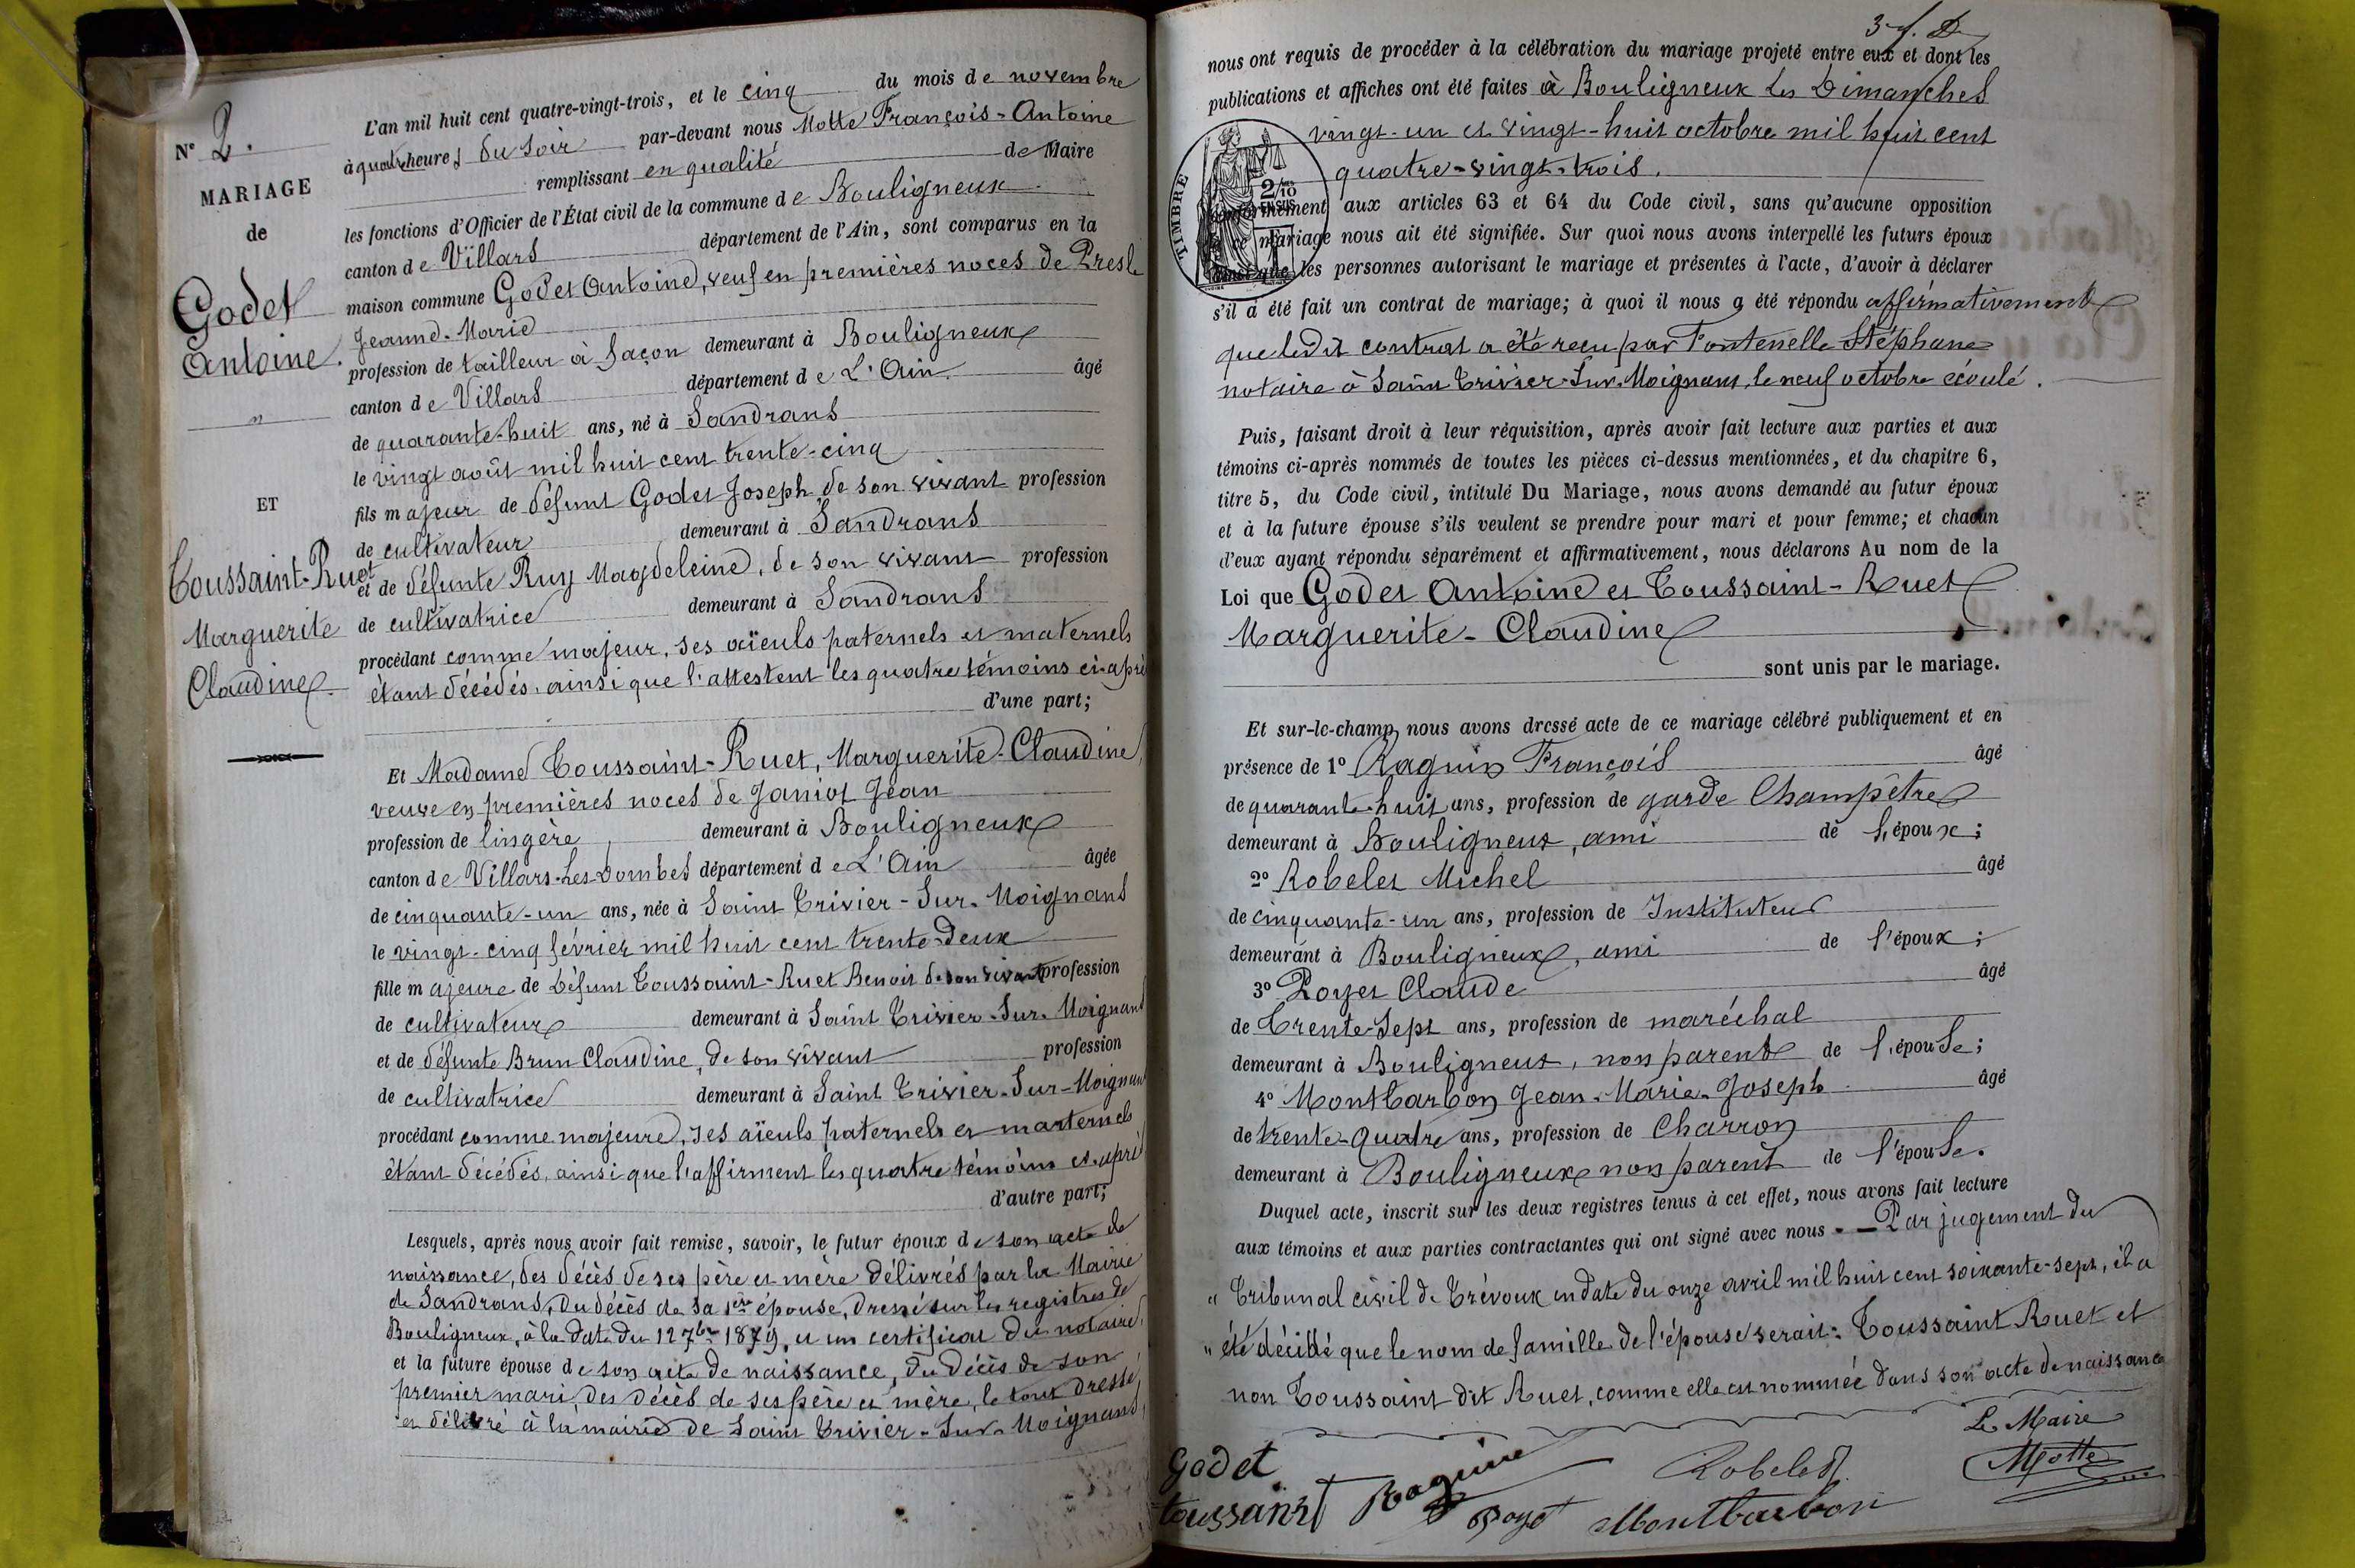 N° 2.
MARIAGE
de
Godet
Antoine.
"
ET
Toussaint-Ruet
Marguerite
Claudine.
L'an mil huit cent quatre-vingt-trois, et le cinq du mois de novembre
à quatre heures du soir par-devant nous Motte François-Antoine
remplissant en qualité de Maire
les fonctions d'Officier de l'État civil de la commune de Bouligneux
canton de Villars département de l'Ain, sont comparus en la
maison commune Godet Antoine, veuf en premières noces de Presle
Jeanne-Marie
profession de tailleur à façon demeurant à Bouligneux
canton de Villars département de L'Ain âgé
de quarante-huit ans, né à Sandrans
le vingt août mil huit cent trente-cinq
fils majeur de défunt Godet Joseph de son vivant profession
de cultivateur demeurant à Sandrans
et de défunte Ruy Magdeleine, de son vivant profession
de cultivatrice demeurant à Sandrans
procédant comme majeur, ses aïeuls paternels et maternels
étant décédés, ainsi que l'attestent les quatre témoins ci-après
d'une part;
Et Madame Toussaint-Ruet, Marguerite-Claudine,
veuve en premières noces de Janiot Jean
profession de lingère demeurant à Bouligneux
canton de Villars-Les-Dombes département de L'Ain âgée
de cinquante-un ans, née à Saint Trivier-Sur-Moignans
le vingt-cinq février mil huit cent trente-deux
fille majeure de Défunt Toussaint-Ruet Benoit de son vivant profession
de cultivateur demeurant à Saint Trivier-Sur-Moignans
et de défunte Brun Claudine, de son vivant profession
de cultivatrice demeurant à Saint Trivier-Sur-Moignans
procédant comme majeure, ses aïeuls paternels et marternels
étant décédés, ainsi que l'affirment les quatre témoins ci-après
d'autre part;
Lesquels, après nous avoir fait remise, savoir, le futur époux de son acte de
naissance, des décès de ses père et mère délivrés par la Mairie
de Sandrans, du décès de sa 1ère épouse, dressé sur les registres de
Bouligneux, à la date du 12 7bre 1879, et un certificat du notaire,
et la future épouse de son acte de naissance, du décès de son
premier mari, des décès de ses père et mère, le tout dressé
et délivré à la mairie de Saint Trivier-Sur-Moignans,
nous ont requis de procéder à la célébration du mariage projeté entre eux et dont les
publications et affiches ont été faites à Bouligneux les Dimanches
vingt-un et vingt-huit octobre mil huit cent
quatre-vingt-trois.
TIMBRE
2/10
EN SUS
conformément aux articles 63 et 64 du Code civil, sans qu'aucune opposition
à ce mariage nous ait été signifiée. Sur quoi nous avons interpellé les futurs époux
ainsi que les personnes autorisant le mariage et présentes à l'acte, d'avoir à déclarer
s'il a été fait un contrat de mariage; à quoi il nous a été répondu affirmativement
que ledit contrat a été reçu par Fontenelle Stéphane
notaire à Saint Trivier-Sur-Moignans, le neuf octobre écoulé.
Puis, faisant droit à leur réquisition, après avoir fait lecture aux parties et aux
témoins ci-après nommés de toutes les pièces ci-dessus mentionnées, et du chapitre 6,
titre 5, du Code civil, intitulé Du Mariage, nous avons demandé au futur époux
et à la future épouse s'ils veulent se prendre pour mari et pour femme; et chacun
d'eux ayant répondu séparément et affirmativement, nous déclarons Au nom de la
Loi que Godet Antoine et Toussaint-Ruet
Marguerite-Claudine
sont unis par le mariage.
Et sur-le-champ, nous avons dressé acte de ce mariage célébré publiquement et en
présence de 1° Raguin François âgé
de quarante-huit ans, profession de garde Champêtre
demeurant à Bouligneux, ami de l'époux;
2° Robelet Michel âgé
de cinquante-un ans, profession de Instituteur
demeurant à Bouligneux, ami de l'époux;
3° Poyet Claude âgé
de Trente-Sept ans, profession de maréchal
demeurant à Bouligneux, non parent de l'épouse;
4° Montbarbon Jean-Marie-Joseph âgé
de trente-quatre ans, profession de Charron
demeurant à Bouligneux non parent de l'épouse.
Duquel acte, inscrit sur les deux registres tenus à cet effet, nous avons fait lecture
aux témoins et aux parties contractantes qui ont signé avec nous. — Par jugement du
" Tribunal civil de Trévoux en date du onze avril mil huit cent soixante-sept, il a
" été décidé que le nom de famille de l'épouse serait: Toussaint Ruet et
non Toussaint dit Ruet, comme elle est nommée dans son acte de naissance
Le Maire
Motte
Godet
Raguin
Robelet
toussaint
Poyet
Montbarbon